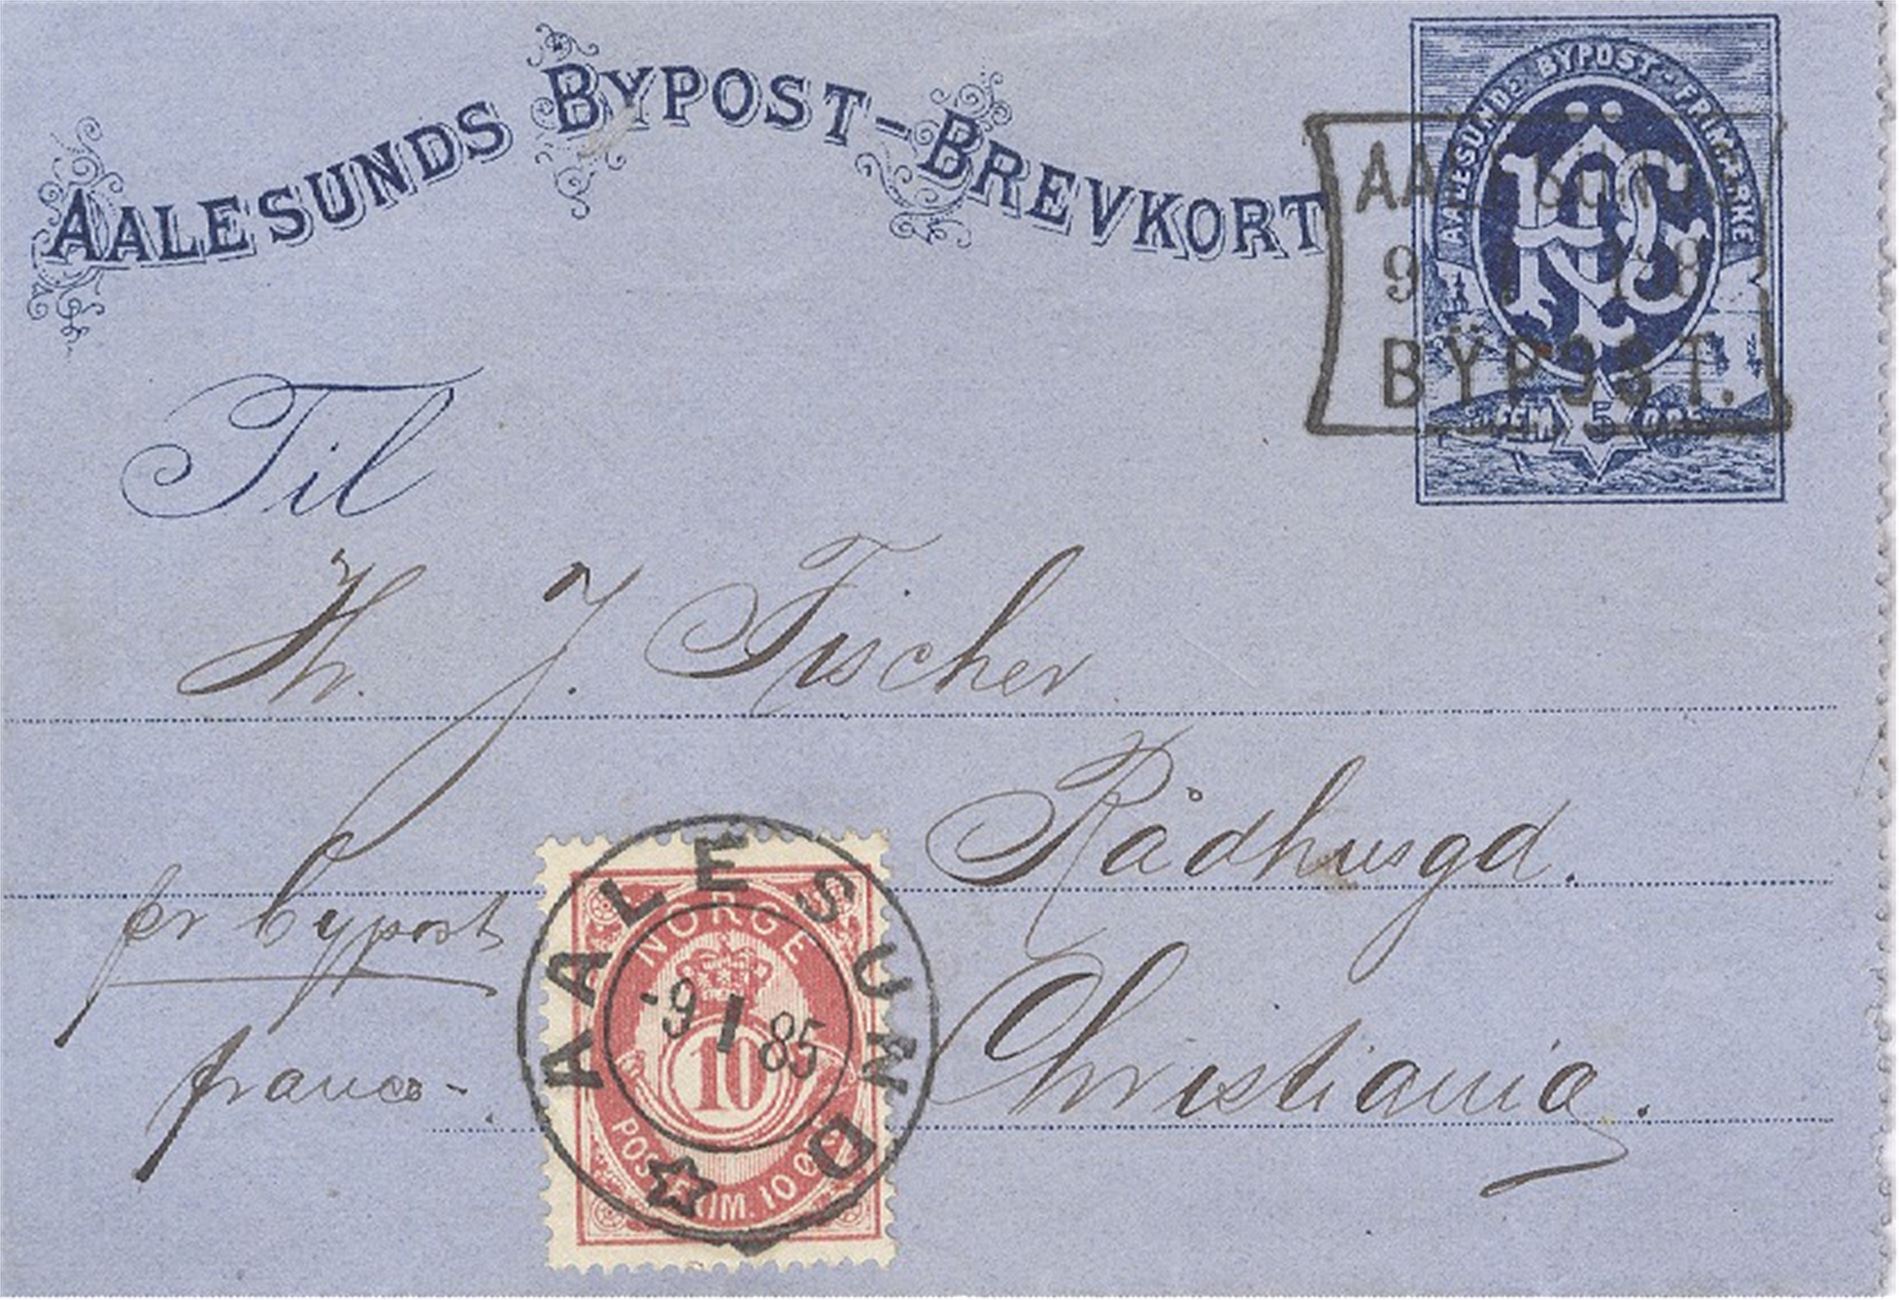 AALESUNDS BYPOST-BREVKORT
AALESUNDS BYPOST-FRIMÆRKE
FEM 5 ÖRE
BYPOST.
Til
Hr. J. Fischer
Rådhusgd.
Christiania.
pr bypost
franco-
AALESUND
-9 I 85
NORGE
10
POSTFRIM. 10 ØRE